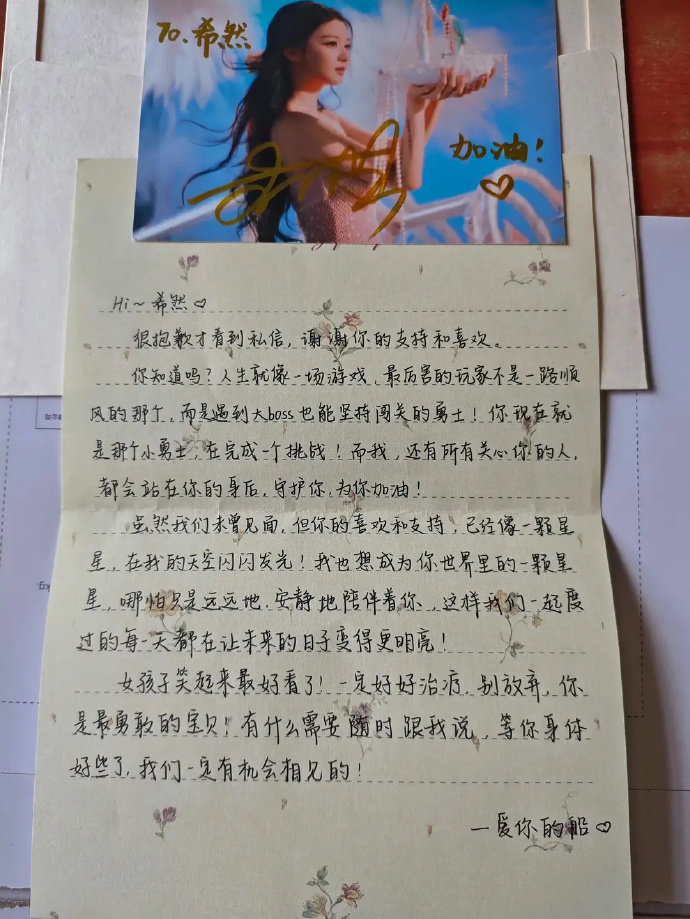 To.希然
加油！♡
Hi~希然♡
很抱歉才看到私信，谢谢你的支持和喜欢。
你知道吗？人生就像一场游戏，最厉害的玩家不是一路顺
风的那个，而是遇到大boss也能坚持闯关的勇士！你现在就
是那个小勇士，在完成一个挑战！而我，还有所有关心你的人，
都会站在你的身后，守护你，为你加油！
虽然我们未曾见面，但你的喜欢和支持，已经像一颗星
星，在我的天空闪闪发光！我也想成为你世界里的一颗星
星，哪怕只是远远地，安静地陪伴着你，这样我们一起度
过的每一天都在让未来的日子变得更明亮！
女孩子笑起来最好看了！一定好好治疗，别放弃，你
是最勇敢的宝贝！有什么需要随时跟我说，等你身体
好些了，我们一定有机会相见的！
—爱你的船♡